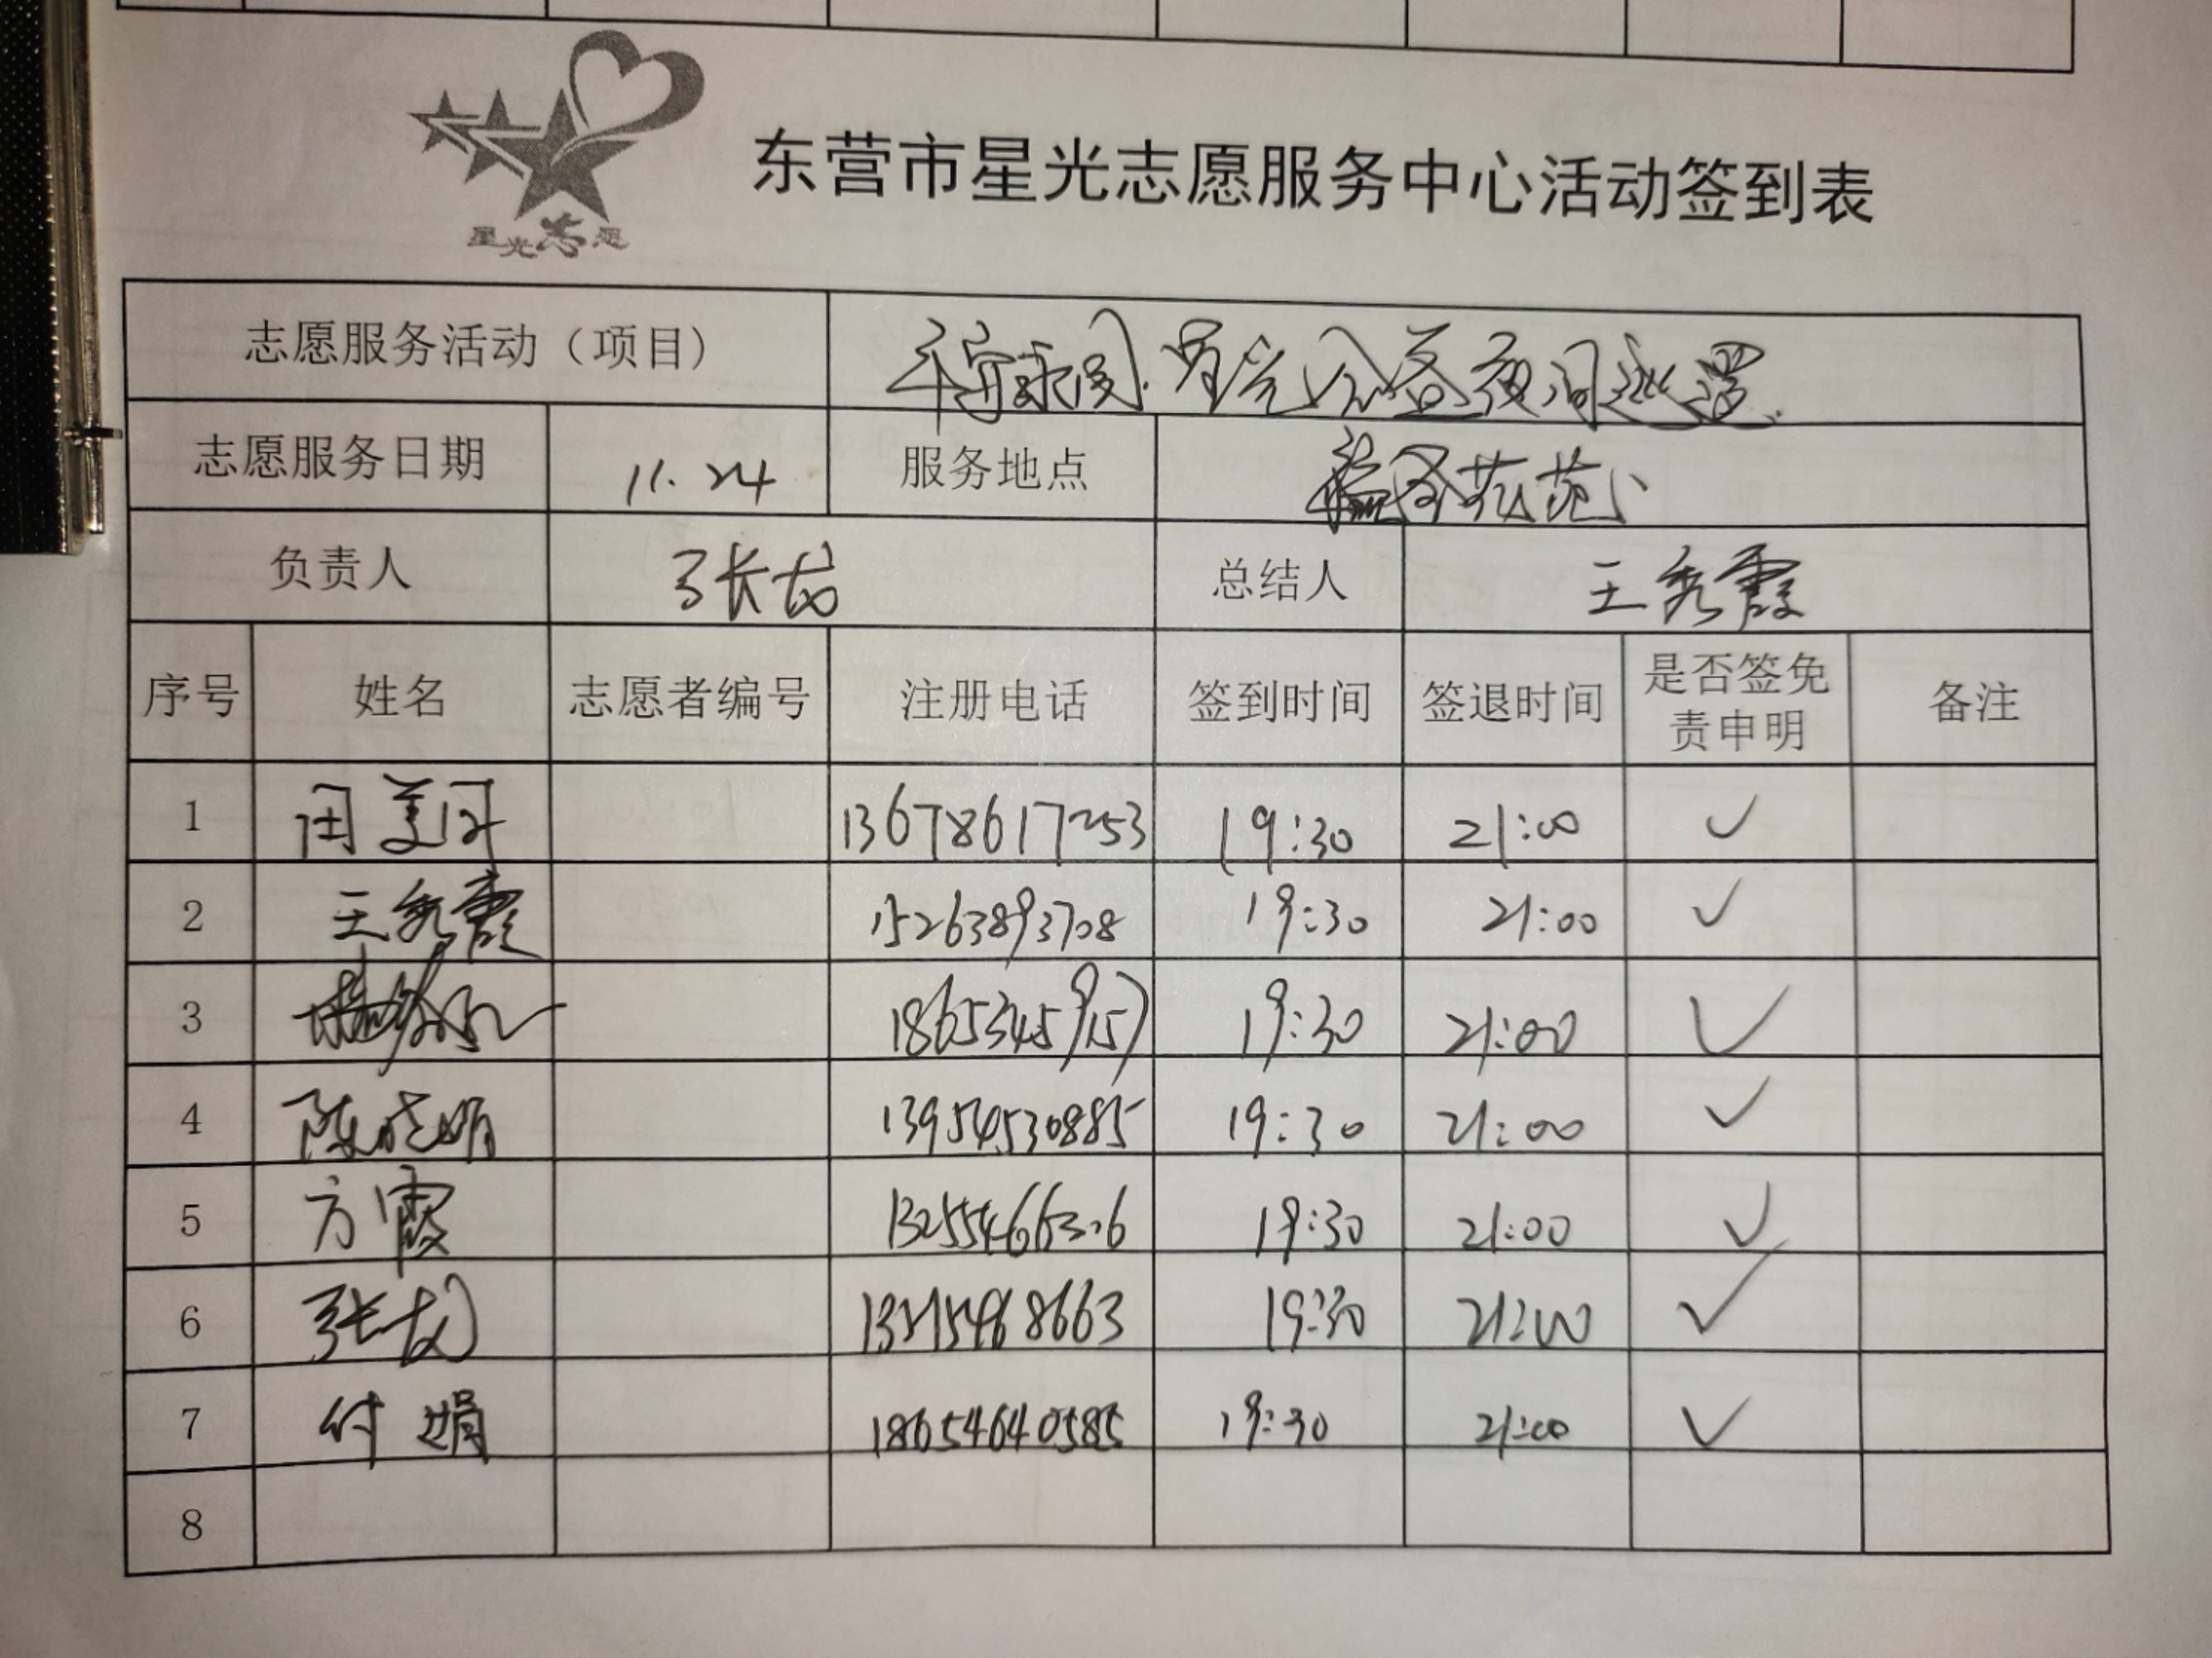 星光志愿
东营市星光志愿服务中心活动签到表
志愿服务活动（项目） 平安 星光公益夜间巡逻
志愿服务日期 11.24 服务地点
负责人 张龙 总结人 王秀霞
序号 姓名 志愿者编号 注册电话 签到时间 签退时间 是否签免责申明 备注
1 13678617253 19:30 21:00 ✓
2 王秀霞 15263893708 19:30 21:00 ✓
3 18653459157 19:30 21:00 ✓
4 陈晓娟 13954530885 19:30 21:00 ✓
5 方霞 13255466306 19:30 21:00 ✓
6 张龙 19:30 21:00 ✓
7 付娟 18654640585 19:30 21:00 ✓
8